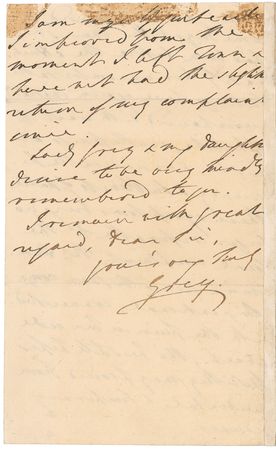 I am my
I improved from the
moment I left Town &
have not had the slight
return of my complaint
since.
Lady Grey & my daughters
desire to be very kindly
remembered to you.
I remain with great
regard, Dear Sir,
yours very truly
Grey.